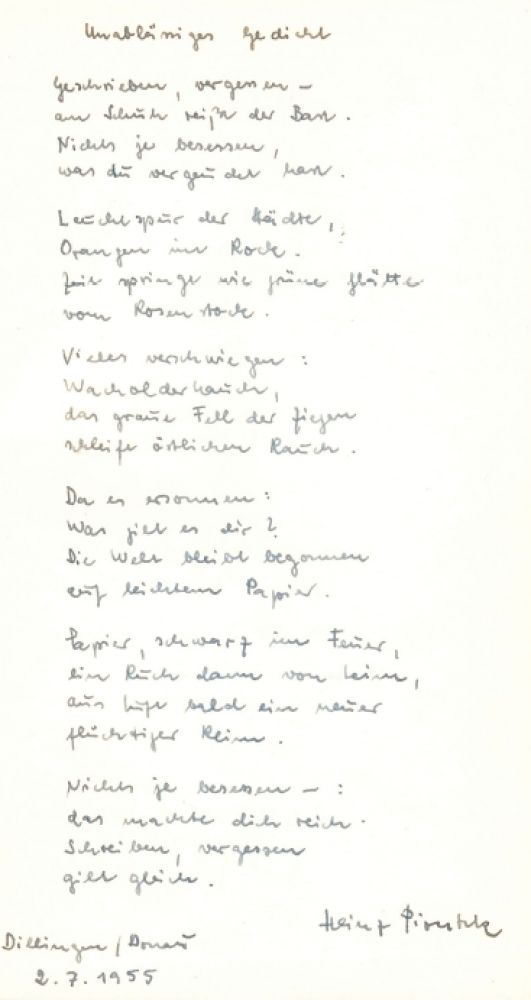 Unablässiges Gedicht
Geschrieben, vergessen –
am Schuh reißt der Bast.
Nichts je besessen,
was du vergeudet hast.
Leuchtspur der Städte,
Orangen im Rock.
Zeit springt wie grüne Glätte
vom Rosenstock.
Vieles verschwiegen:
Wacholderhauch,
das graue Fell der Ziegen
schleift östlichen Rauch.
Da es ersonnen:
Was gilt es dir?
Die Welt bleibt begonnen
auf leichtem Papier.
Papier, schwarz im Feuer,
ein Ruch dann von Leim,
aus Luft bald ein neuer
flüchtiger Reim.
Nichts je besessen – :
das machte dich reich.
Schreiben, vergessen
gilt gleich.
Heinz Piontek
Dillingen/Donau
2.7.1955